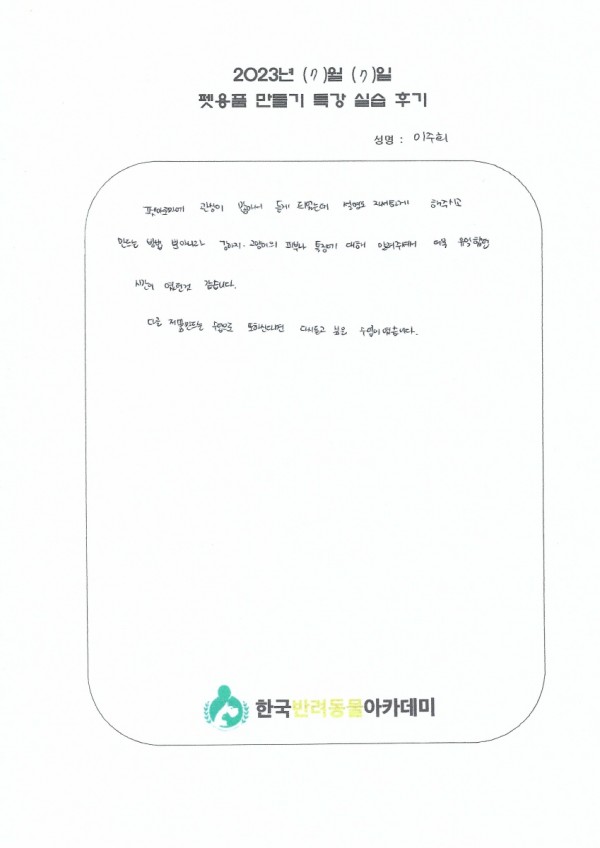 2023년 (7)월 (7)일
펫용품 만들기 특강 실습 후기
성명 : 이주희
관심이 많아서 듣게 되었는데 설명도 자세하게 해주시고
만드는 방법 뿐아니라 강아지·고양이의 피부나 특징에 대해 알려주셔서 더욱 유익했던
시간이 였던것 같습니다.
다른 제품만드는 수업으로 또하신다면 다시듣고 싶은 수업이었습니다.
한국반려동물아카데미